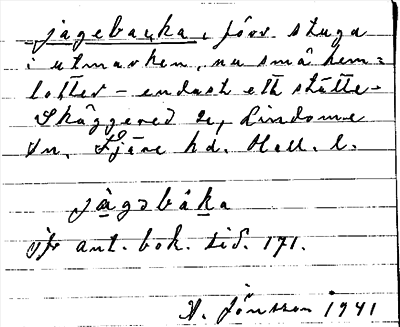 jägebacka, förr stuga
i utmarken, nu små hem=
lotter – endast ett ställe –
Skäggered 2, Lindome
sn, Fjäre hd. Hall. l.
jàgəbáka
Jfr ant. bok. sid. 171.
A. Jönsson 1941